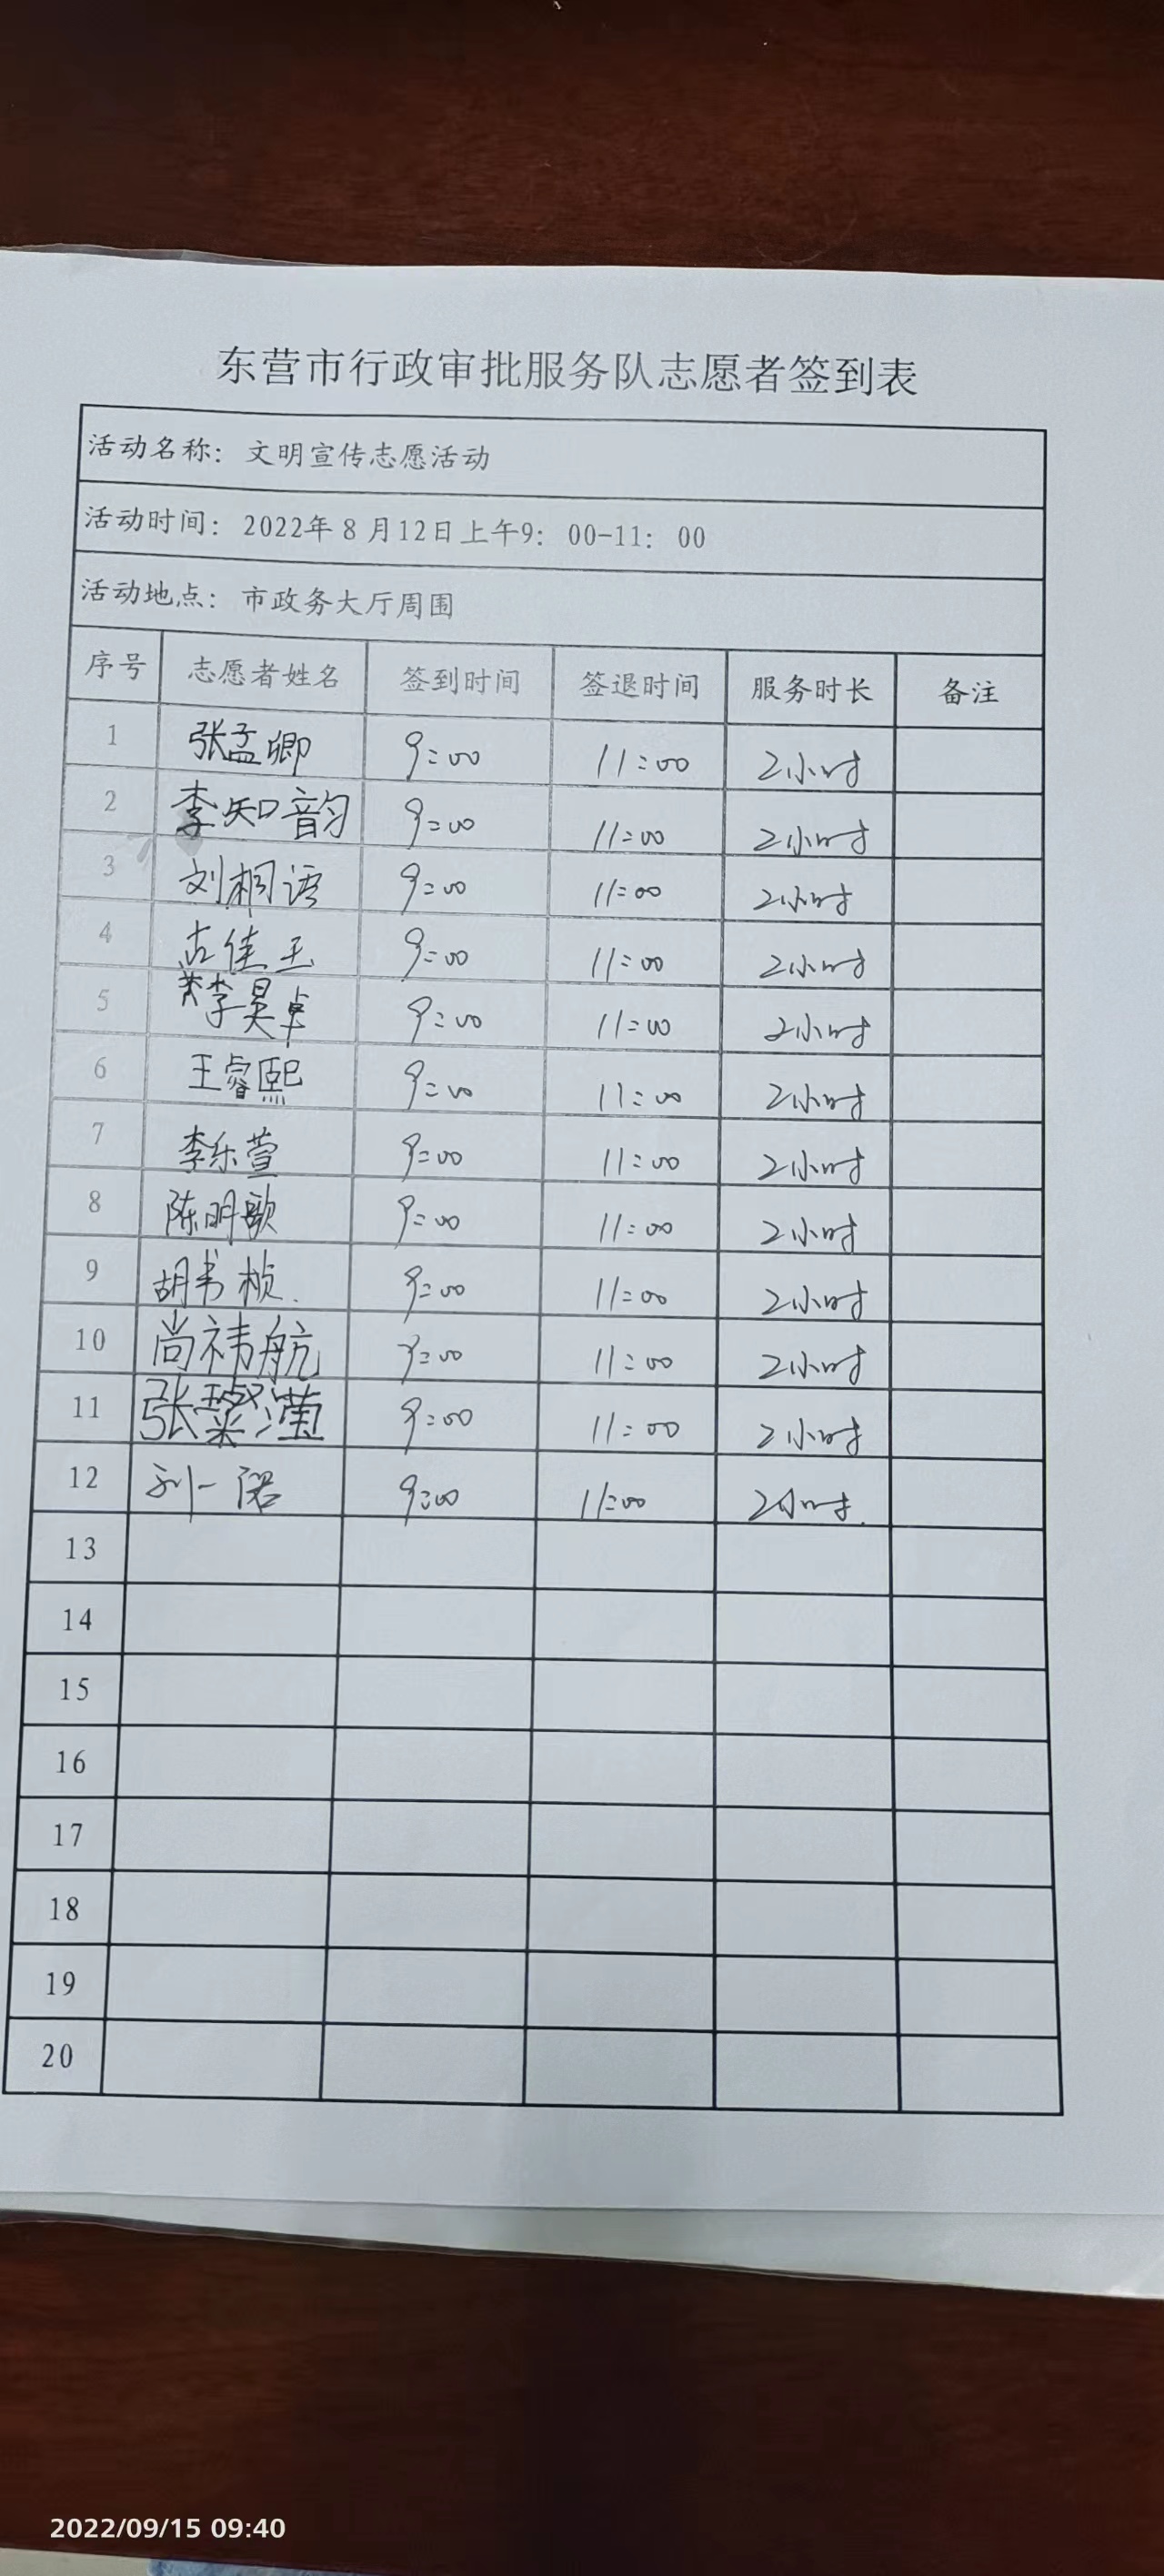 东营市行政审批服务队志愿者签到表
活动名称：文明宣传志愿活动
活动时间：2022年8月12日上午9：00-11：00
活动地点：市政务大厅周围
序号 志愿者姓名 签到时间 签退时间 服务时长 备注
1 张孟卿 9:00 11:00 2小时
2 李知韵 9:00 11:00 2小时
3 刘桐语 9:00 11:00 2小时
4 古佳玉 9:00 11:00 2小时
5 李昊卓 9:00 11:00 2小时
6 王睿熙 9:00 11:00 2小时
7 李乐萱 9:00 11:00 2小时
8 陈明歌 9:00 11:00 2小时
9 胡书桢 9:00 11:00 2小时
10 尚祎航 9:00 11:00 2小时
11 张璨滢 9:00 11:00 2小时
12 刘一诺 9:00 11:00 2小时.
13
14
15
16
17
18
19
20
2022/09/15 09:40